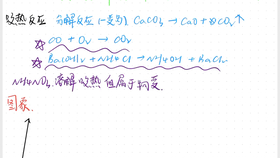 吸热反应 分解反应(一受多) CaCO₃ → CaO + CO₂↑
☆ CO + O₂ → CO₂
☆ Ba(OH)₂ + NH₄Cl → NH₄OH + BaCl₂
NH₄NO₃ 溶解吸热 但属于物变
图象.